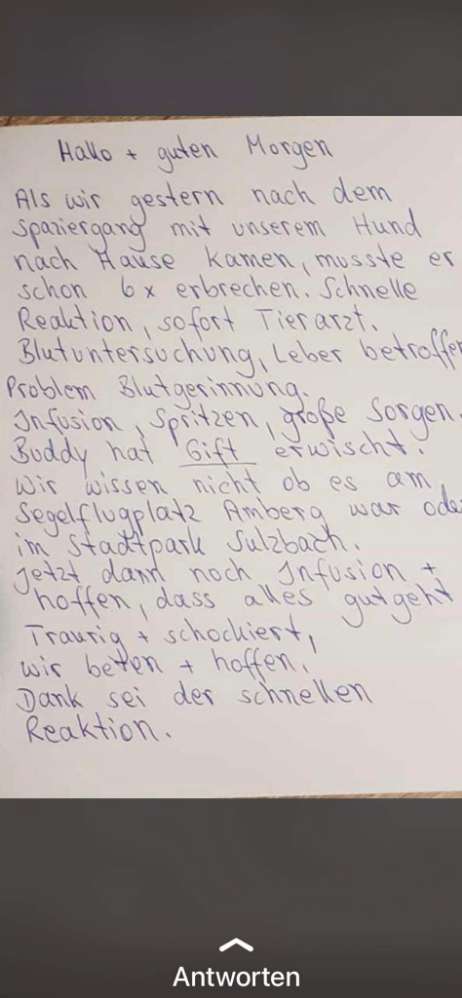 Hallo + guten Morgen
Als wir gestern nach dem
spaziergang mit unserem Hund
nach Hause kamen, musste er
schon 6x erbrechen. Schnelle
Reaktion, sofort Tierarzt.
Blutuntersuchung, Leber betroffen
Problem Blutgerinnung.
Infusion, Spritzen, große Sorgen.
Buddy hat Gift erwischt.
Wir wissen nicht ob es am
Segelflugplatz Amberg war oder
im Stadtpark Sulzbach.
Jetzt dann noch Infusion +
hoffen, dass alles gutgeht
Traurig + schockiert,
wir beten + hoffen.
Dank sei der schnellen
Reaktion.
Antworten